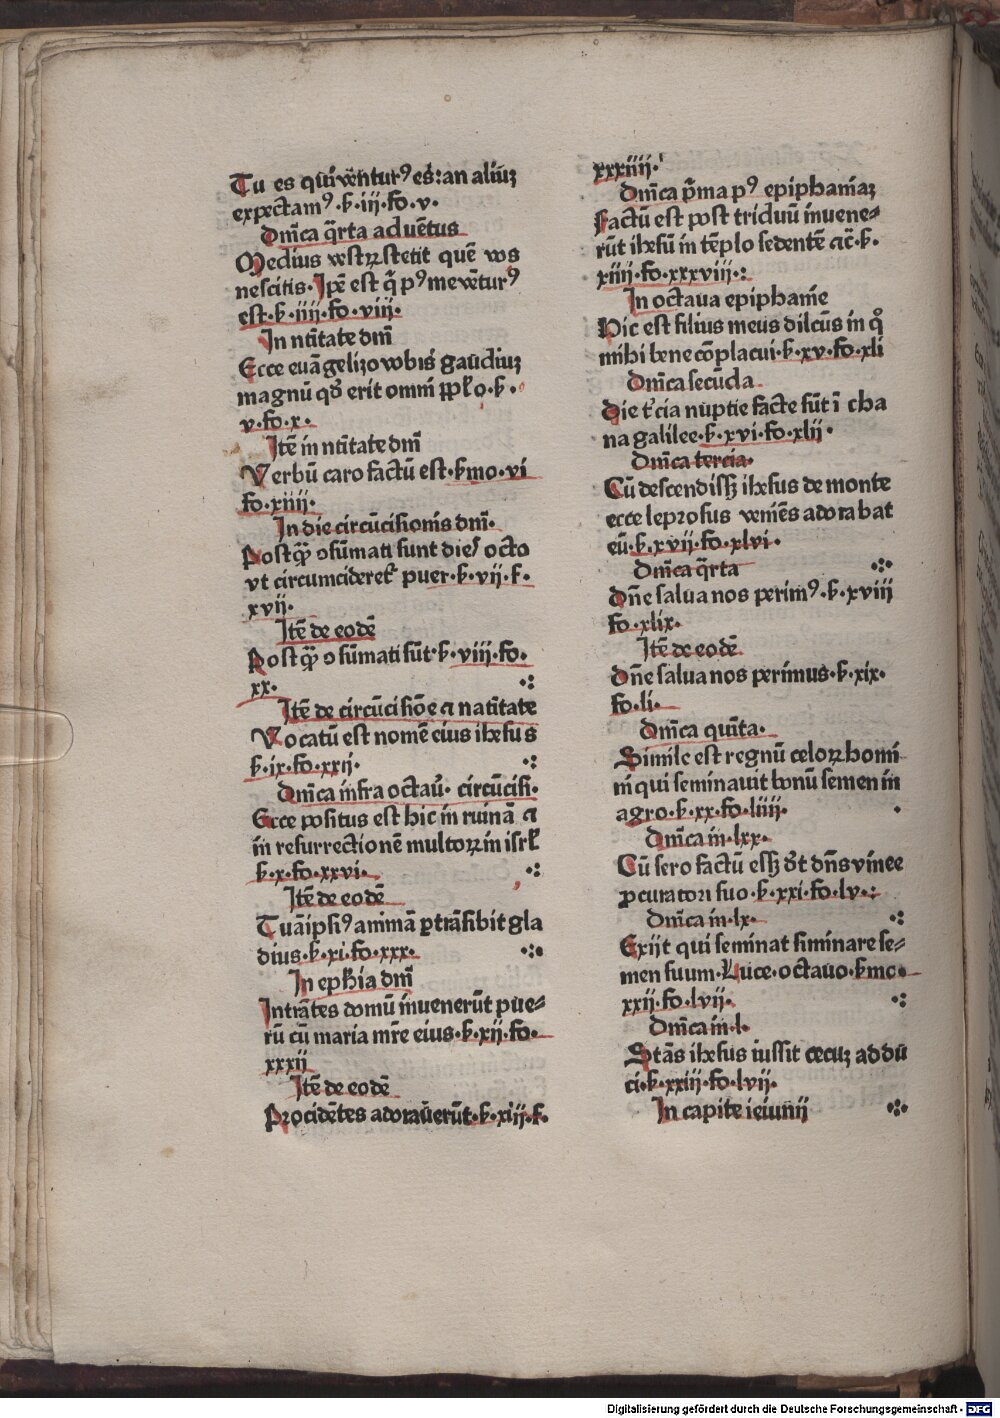 Tu es qui vēturꝰ es: an aliuꝫ
expectamꝰ. ẜ. iij. fo. v.
Dn̄ica q̄rta aduētus
Medius vestrꝝ stetit quē vos
nescitis. Ip̄e est q̄ pꝰ me vēturꝰ
est. ẜ. iiij. fo. viii.
In n̄titate dn̄i
Ecce euāgelizo vobis gaudiuꝫ
magnū qd̛ erit omni pplo. ẜ.
v. fo. x.
Itē in n̄titate dn̄i
Verbū caro factū est. ẜmo. vi
fo. xiiii.
In die circūcisionis dn̄i.
Postꝙ̄ ꝯsūmati sunt dies octo
vt circumcideret̉ puer. ẜ. vii. f.
xvij.
Itē de eodē
Postꝙ̄ ꝯsūmati sūt. ẜ. viii. fo.
xx.
Itē de circūcisiōe ⁊ natītate
Vocatū est nomē eius ihesus
ẜ. ix. fo. xxij.
Dn̄ica infra octaū. circūcisi.
Ecce positus est hic in ruinā ⁊
in resurrectionē multoꝝ in isrł
ẜ. x. fo. xxvi.
Itē de eodē
Tuā ipsiꝰ animā ꝑtrāsibit gla
dius. ẜ. xi. fo. xxx.
In eph̄ia dn̄i
Intrātes domū inuenerūt pue⸗
rū cū maria mr̄e eius. ẜ. xij. fo.
xxxij
Itē de eodē
Procidētes adorauerūt. ẜ. xiij. f.
xxxiiij.
Dn̄ica p̄ma pꝰ epiphaniaꝫ
Factū est post triduū inuene⸗
rūt ihesū in tēplo sedentē ⁊c̄. ẜ.
xiiij. fo. xxxviii.
In octaua epiphanie
Hic est filius meus dilcūs in q̊
mihi bene cōplacui. ẜ. xv. fo. xli
Dn̄ica secūda
Die t̉cia nuptie facte sūt ī cha
na galilee. ẜ. xvi. fo. xlij.
Dn̄ica tercia.
Cū descendissꝫ ihesus de monte
ecce leprosus veniēs adorabat
eū. ẜ. xvij. fo. xlvi.
Dn̄ica q̄rta
Dn̄e salua nos perimꝰ. ẜ. xviii
fo. xlix.
Itē de eodē
Dn̄e salua nos perimus. ẜ. xix.
fo. li.
Dn̄ica quīta.
Simile est regnū celoꝝ homi
ni qui seminauit bonū semen in
agro. ẜ. xx. fo. liiij.
Dn̄ica in. lxx.
Cū sero factū essꝫ dt̄ dn̄s vinee
ꝓcuratori suo. ẜ. xxi. fo. lv.
Dn̄ica in. lx.
Exijt qui seminat siminare se⸗
men suum. Luce. octauo. ẜmo.
xxij. fo. lvij.
Dn̄ica in. l.
Stās ihesus iussit cecuꝫ addu
ci. ẜ. xxiij. fo. lvij.
In capite ieiunij
Digitalisierung gefördert durch die Deutsche Forschungsgemeinschaft - DFG